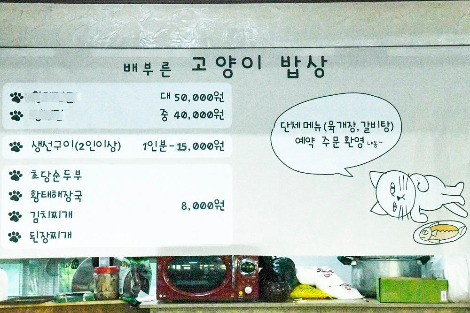 배부른 고양이 밥상
대 50,000원
중 40,000원
생선구이(2인이상) 1인분-15,000원
초당순두부
황태해장국
김치찌개
된장찌개
8,000원
단체메뉴(육개장,갈비탕)
예약 주문 환영 냐옹~